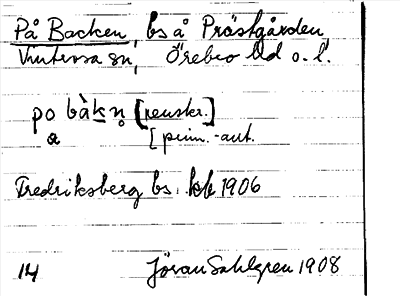 På Backen, bs å Prästgården,
Vintrosa sn, Örebro hd o. l.
po bàkn̥ [renskr.]
a [prim.-ant.
Fredriksberg bs. kb 1906
14 Jöran Sahlgren 1908